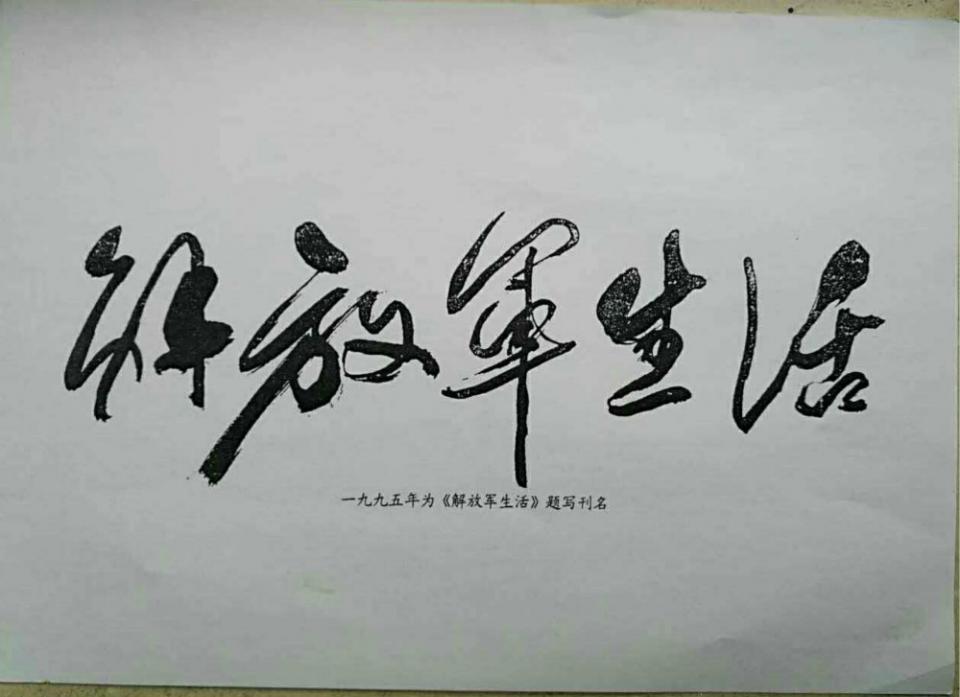 解放军生活
一九九五年为《解放军生活》题写刊名